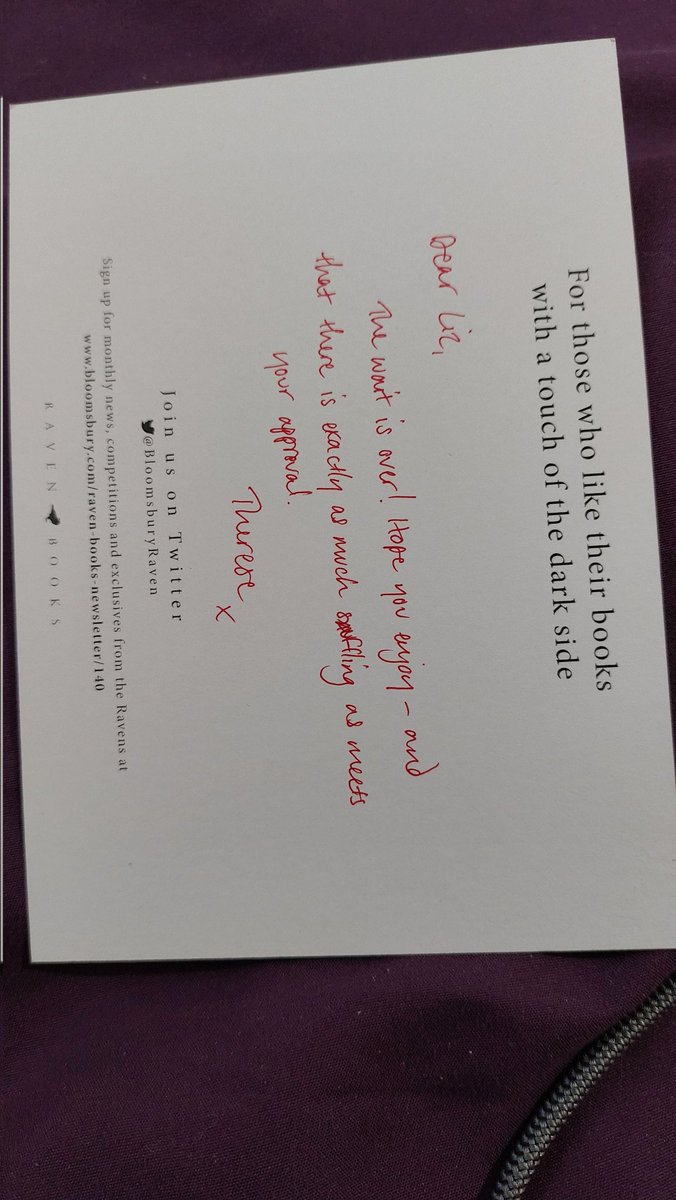 For those who like their books
with a touch of the dark side
Dear Liz,
The wait is over! Hope you enjoy – and
that there is exactly as much as meets
your approval.
Therese x
Join us on Twitter
@BloomsburyRaven
Sign up for monthly news, competitions and exclusives from the Ravens at
www.bloomsbury.com/raven-books-newsletter/140
RAVEN BOOKS